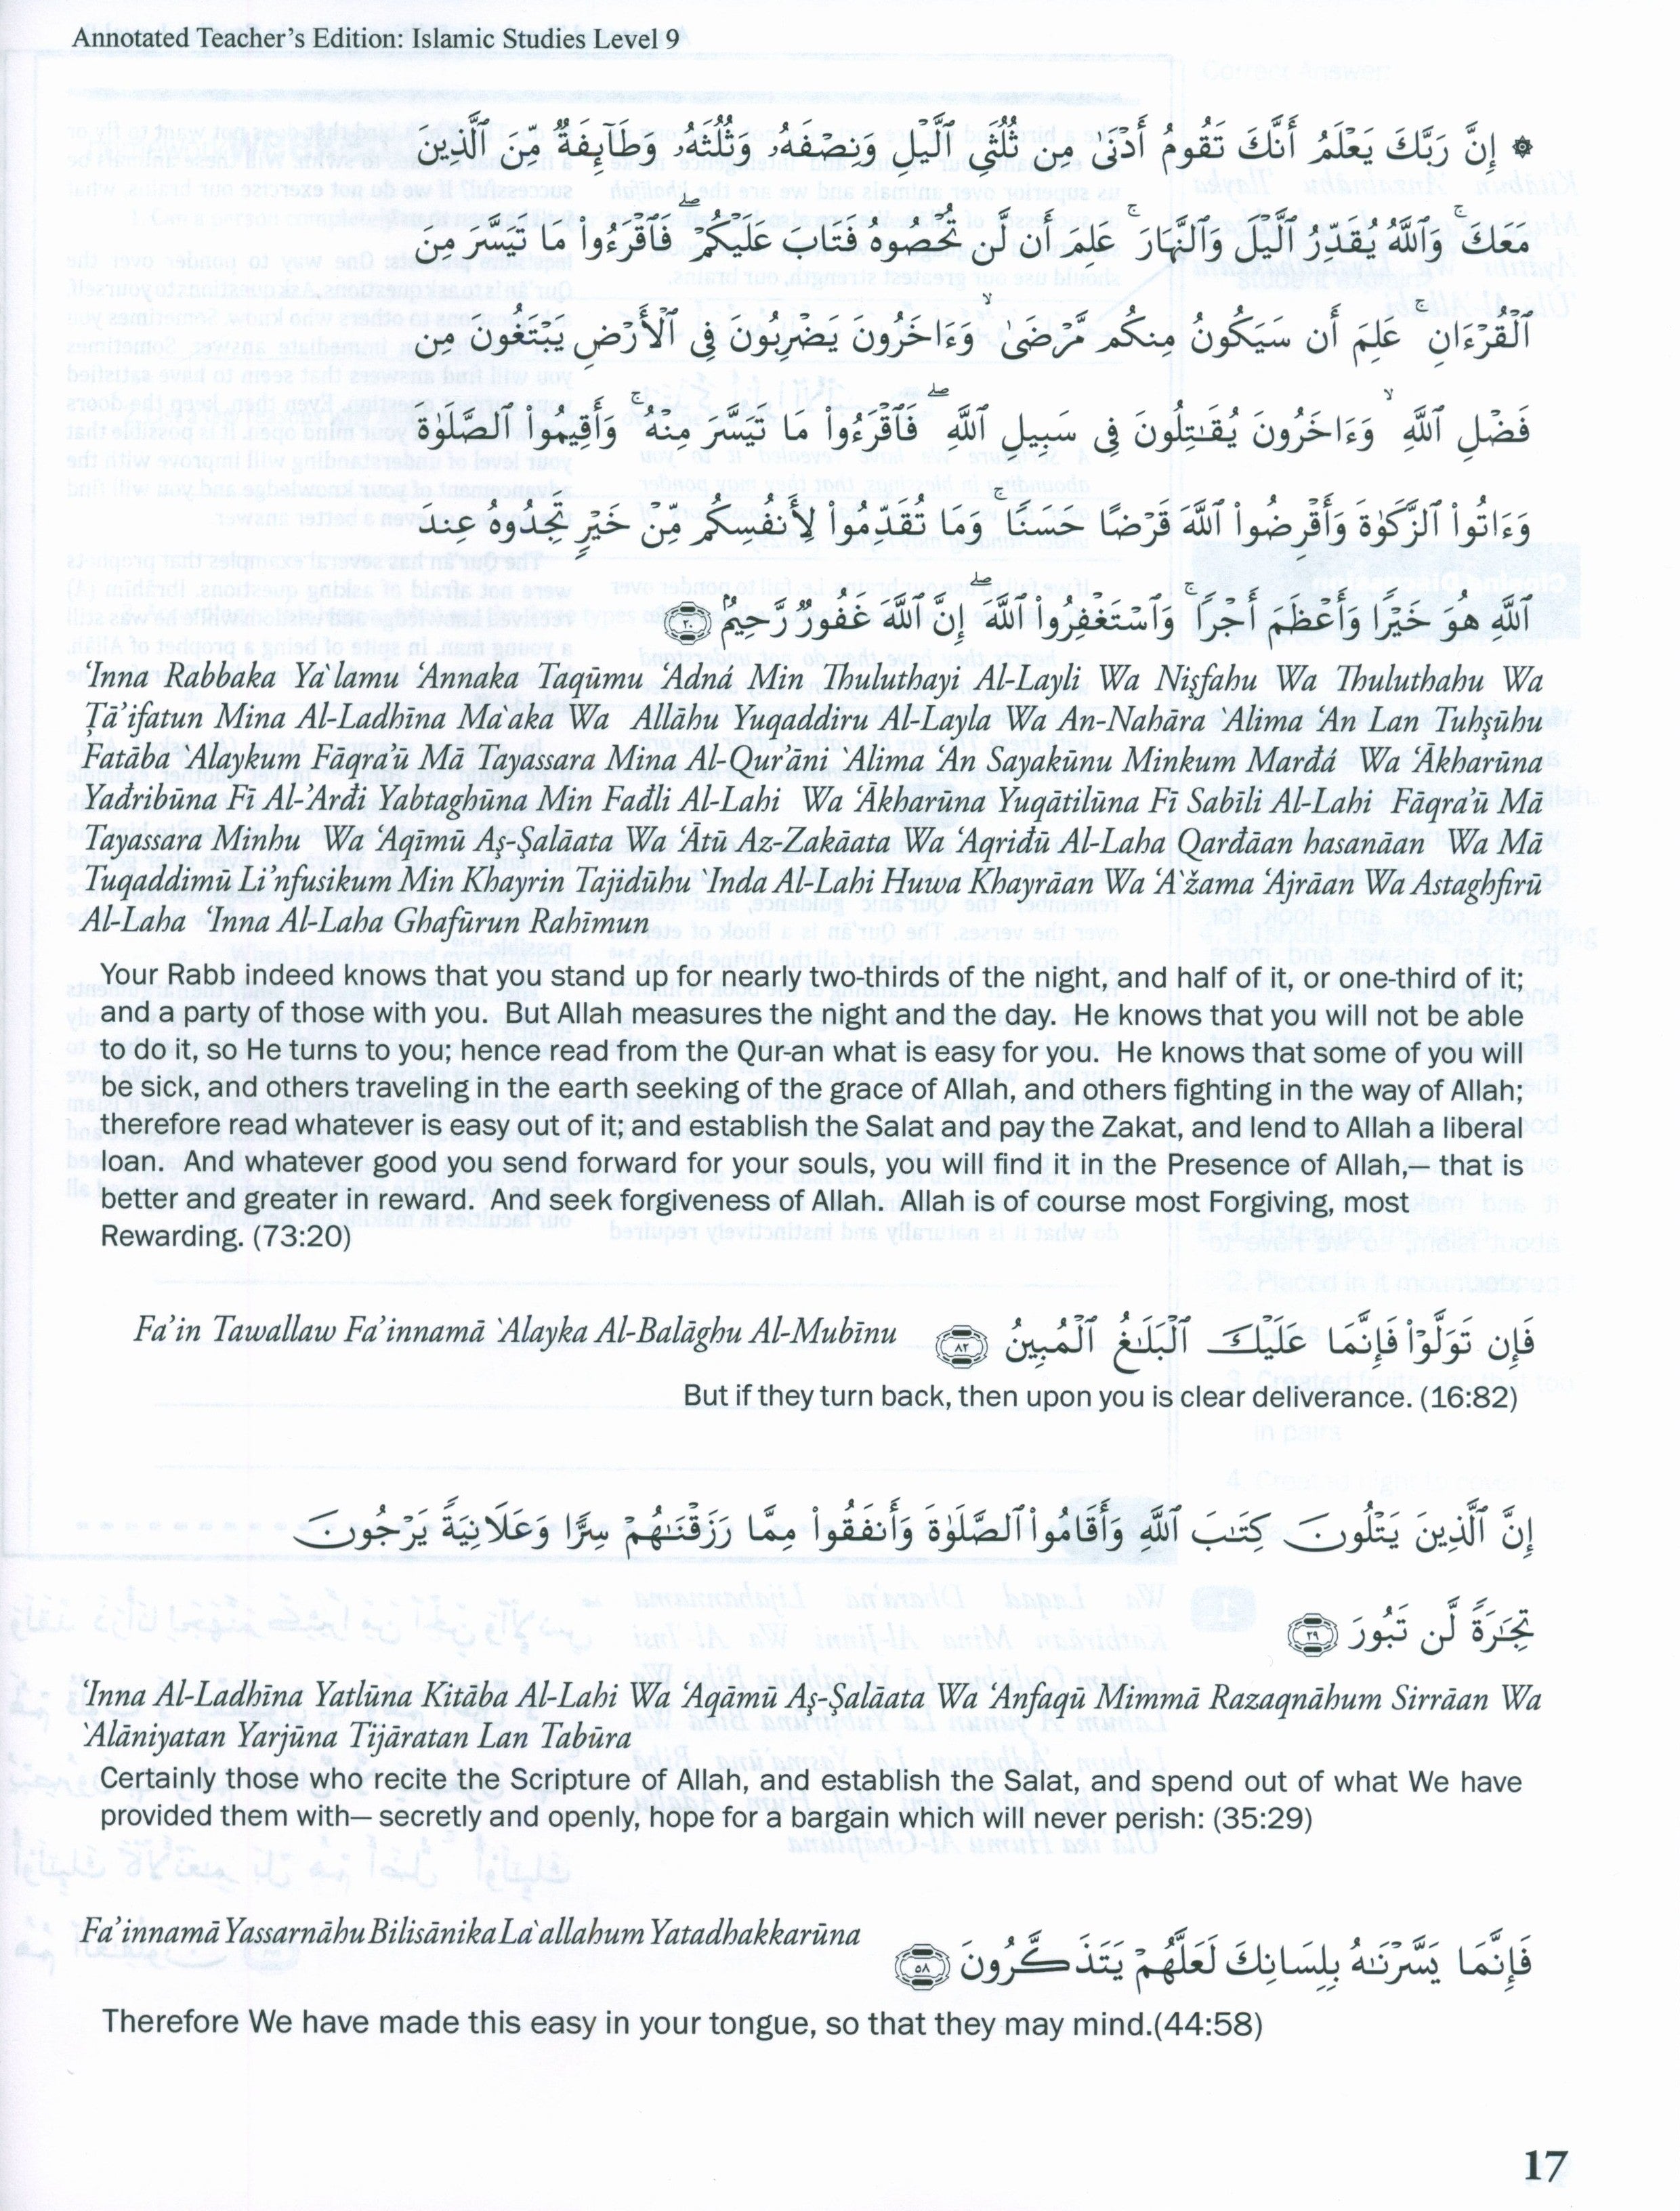 Annotated Teacher's Edition: Islamic Studies Level 9
۞ إِنَّ رَبَّكَ يَعْلَمُ أَنَّكَ تَقُومُ أَدْنَىٰ مِن ثُلُثَيِ ٱلَّيْلِ وَنِصْفَهُۥ وَثُلُثَهُۥ وَطَآئِفَةٌ مِّنَ ٱلَّذِينَ
مَعَكَ ۚ وَٱللَّهُ يُقَدِّرُ ٱلَّيْلَ وَٱلنَّهَارَ ۚ عَلِمَ أَن لَّن تُحْصُوهُ فَتَابَ عَلَيْكُمْ ۖ فَٱقْرَءُوا۟ مَا تَيَسَّرَ مِنَ
ٱلْقُرْءَانِ ۚ عَلِمَ أَن سَيَكُونُ مِنكُم مَّرْضَىٰ ۙ وَءَاخَرُونَ يَضْرِبُونَ فِى ٱلْأَرْضِ يَبْتَغُونَ مِن
فَضْلِ ٱللَّهِ ۙ وَءَاخَرُونَ يُقَـٰتِلُونَ فِى سَبِيلِ ٱللَّهِ ۖ فَٱقْرَءُوا۟ مَا تَيَسَّرَ مِنْهُ ۚ وَأَقِيمُوا۟ ٱلصَّلَوٰةَ
وَءَاتُوا۟ ٱلزَّكَوٰةَ وَأَقْرِضُوا۟ ٱللَّهَ قَرْضًا حَسَنًا ۚ وَمَا تُقَدِّمُوا۟ لِأَنفُسِكُم مِّنْ خَيْرٍ تَجِدُوهُ عِندَ
ٱللَّهِ هُوَ خَيْرًا وَأَعْظَمَ أَجْرًا ۚ وَٱسْتَغْفِرُوا۟ ٱللَّهَ ۖ إِنَّ ٱللَّهَ غَفُورٌ رَّحِيمٌ ٢٠
'Inna Rabbaka Ya`lamu 'Annaka Taqūmu 'Adná Min Thuluthayi Al-Layli Wa Nişfahu Wa Thuluthahu Wa
Ţā'ifatun Mina Al-Ladhīna Ma`aka Wa Allāhu Yuqaddiru Al-Layla Wa An-Nahāra `Alima 'An Lan Tuĥşūhu
Fatāba `Alaykum Fāqra'ū Mā Tayassara Mina Al-Qur'āni `Alima 'An Sayakūnu Minkum Marđá Wa 'Ākharūna
Yađribūna Fī Al-'Arđi Yabtaghūna Min Fađli Al-Lahi Wa 'Ākharūna Yuqātilūna Fī Sabīli Al-Lahi Fāqra'ū Mā
Tayassara Minhu Wa 'Aqīmū Aş-Şalāata Wa 'Ātū Az-Zakāata Wa 'Aqriđū Al-Laha Qarđāan ĥasanāan Wa Mā
Tuqaddimū Li'nfusikum Min Khayrin Tajidūhu `Inda Al-Lahi Huwa Khayrāan Wa 'A`žama 'Ajrāan Wa Astaghfirū
Al-Laha 'Inna Al-Laha Ghafūrun Raĥīmun
Your Rabb indeed knows that you stand up for nearly two-thirds of the night, and half of it, or one-third of it;
and a party of those with you. But Allah measures the night and the day. He knows that you will not be able
to do it, so He turns to you; hence read from the Qur-an what is easy for you. He knows that some of you will
be sick, and others traveling in the earth seeking of the grace of Allah, and others fighting in the way of Allah;
therefore read whatever is easy out of it; and establish the Salat and pay the Zakat, and lend to Allah a liberal
loan. And whatever good you send forward for your souls, you will find it in the Presence of Allah,— that is
better and greater in reward. And seek forgiveness of Allah. Allah is of course most Forgiving, most
Rewarding. (73:20)
Fa'in Tawallaw Fa'innamā `Alayka Al-Balāghu Al-Mubīnu
فَإِن تَوَلَّوْا۟ فَإِنَّمَا عَلَيْكَ ٱلْبَلَـٰغُ ٱلْمُبِينُ ٨٢
But if they turn back, then upon you is clear deliverance. (16:82)
إِنَّ ٱلَّذِينَ يَتْلُونَ كِتَـٰبَ ٱللَّهِ وَأَقَامُوا۟ ٱلصَّلَوٰةَ وَأَنفَقُوا۟ مِمَّا رَزَقْنَـٰهُمْ سِرًّا وَعَلَانِيَةً يَرْجُونَ
تِجَـٰرَةً لَّن تَبُورَ ٢٩
'Inna Al-Ladhīna Yatlūna Kitāba Al-Lahi Wa 'Aqāmū Aş-Şalāata Wa 'Anfaqū Mimmā Razaqnāhum Sirrāan Wa
`Alāniyatan Yarjūna Tijāratan Lan Tabūra
Certainly those who recite the Scripture of Allah, and establish the Salat, and spend out of what We have
provided them with— secretly and openly, hope for a bargain which will never perish: (35:29)
Fa'innamā Yassarnāhu Bilisānika La`allahum Yatadhakkarūna
فَإِنَّمَا يَسَّرْنَـٰهُ بِلِسَانِكَ لَعَلَّهُمْ يَتَذَكَّرُونَ ٥٨
Therefore We have made this easy in your tongue, so that they may mind.(44:58)
17